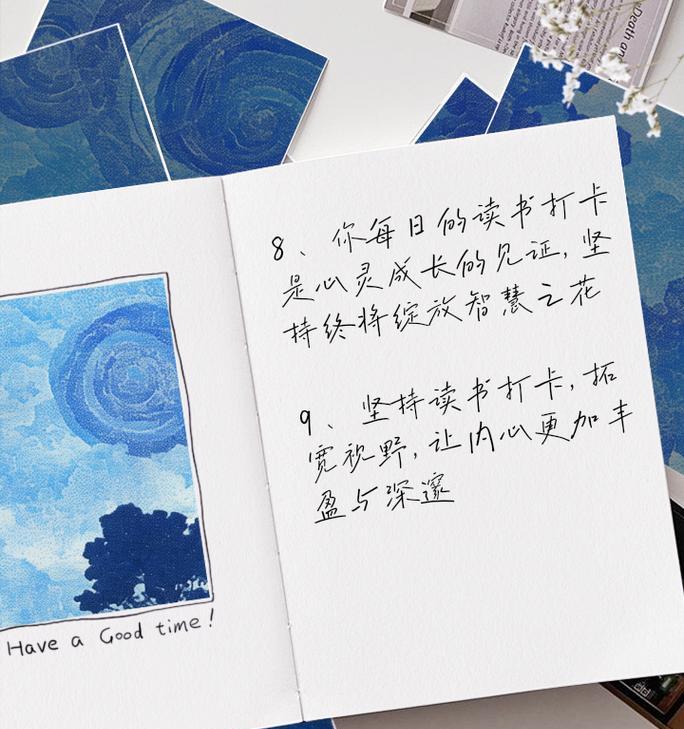 Death an
8、你每日的读书打卡
是心灵成长的见证,坚
持终将绽放智慧之花
9、坚持读书打卡,拓
宽视野,让内心更加丰
盈与深邃
Have a Good time!